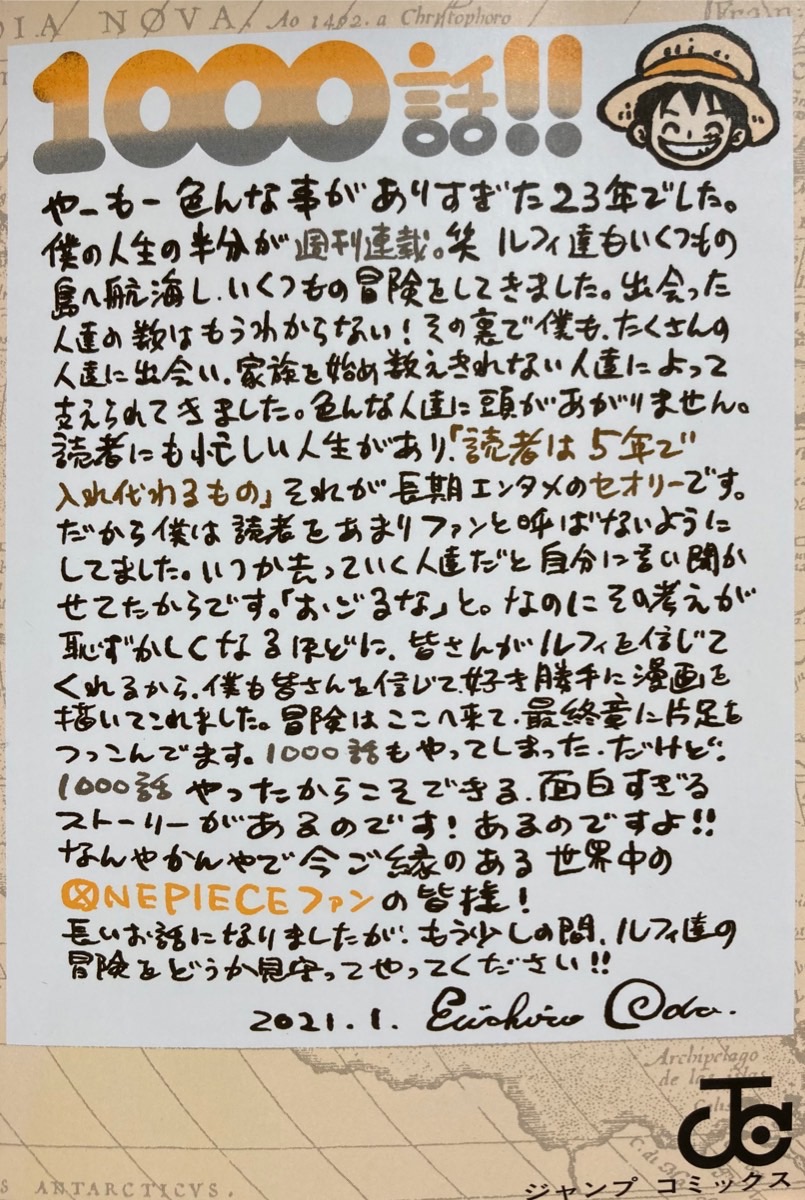 DIA NOVA.
Ao 1492. a Christophoro
1000話!!
やーもー色んな事がありすぎた23年でした。
僕の人生の半分が週刊連載。笑 ルフィ達もいくつもの
島へ航海し、いくつもの冒険をしてきました。出会った
人達の数はもうわからない!その裏で僕も、たくさんの
人達に出会い、家族を始め数えきれない人達によって
支えられてきました。色んな人達に頭があがりません。
読者にも忙しい人生があり、「読者は5年で
入れ代わるもの」それが長期エンタメのセオリーです。
だから僕は読者をあまりファンと呼ばないように
してました。いつか去っていく人達だと自分に言い聞か
せてたからです。「おごるな」と。なのにその考えが
恥ずかしくなるほどに、皆さんがルフィを信じて
くれるから、僕も皆さんを信じて、好き勝手に漫画を
描いてこれました。冒険はここへ来て、最終章に片足を
つっこんでます。1000話もやってしまった、だけど、
1000話やったからこそできる、面白すぎる
ストーリーがあるのです!あるのですよ!!
なんやかんやで今ご縁のある世界中の
ONEPIECEファンの皆様!
長いお話になりましたが、もう少しの間、ルフィ達の
冒険をどうか見守ってやってください!!
2021.1. Eiichiro Oda.
Archipelago
de las islas
ANTARCTICVS.
ジャンプ コミックス